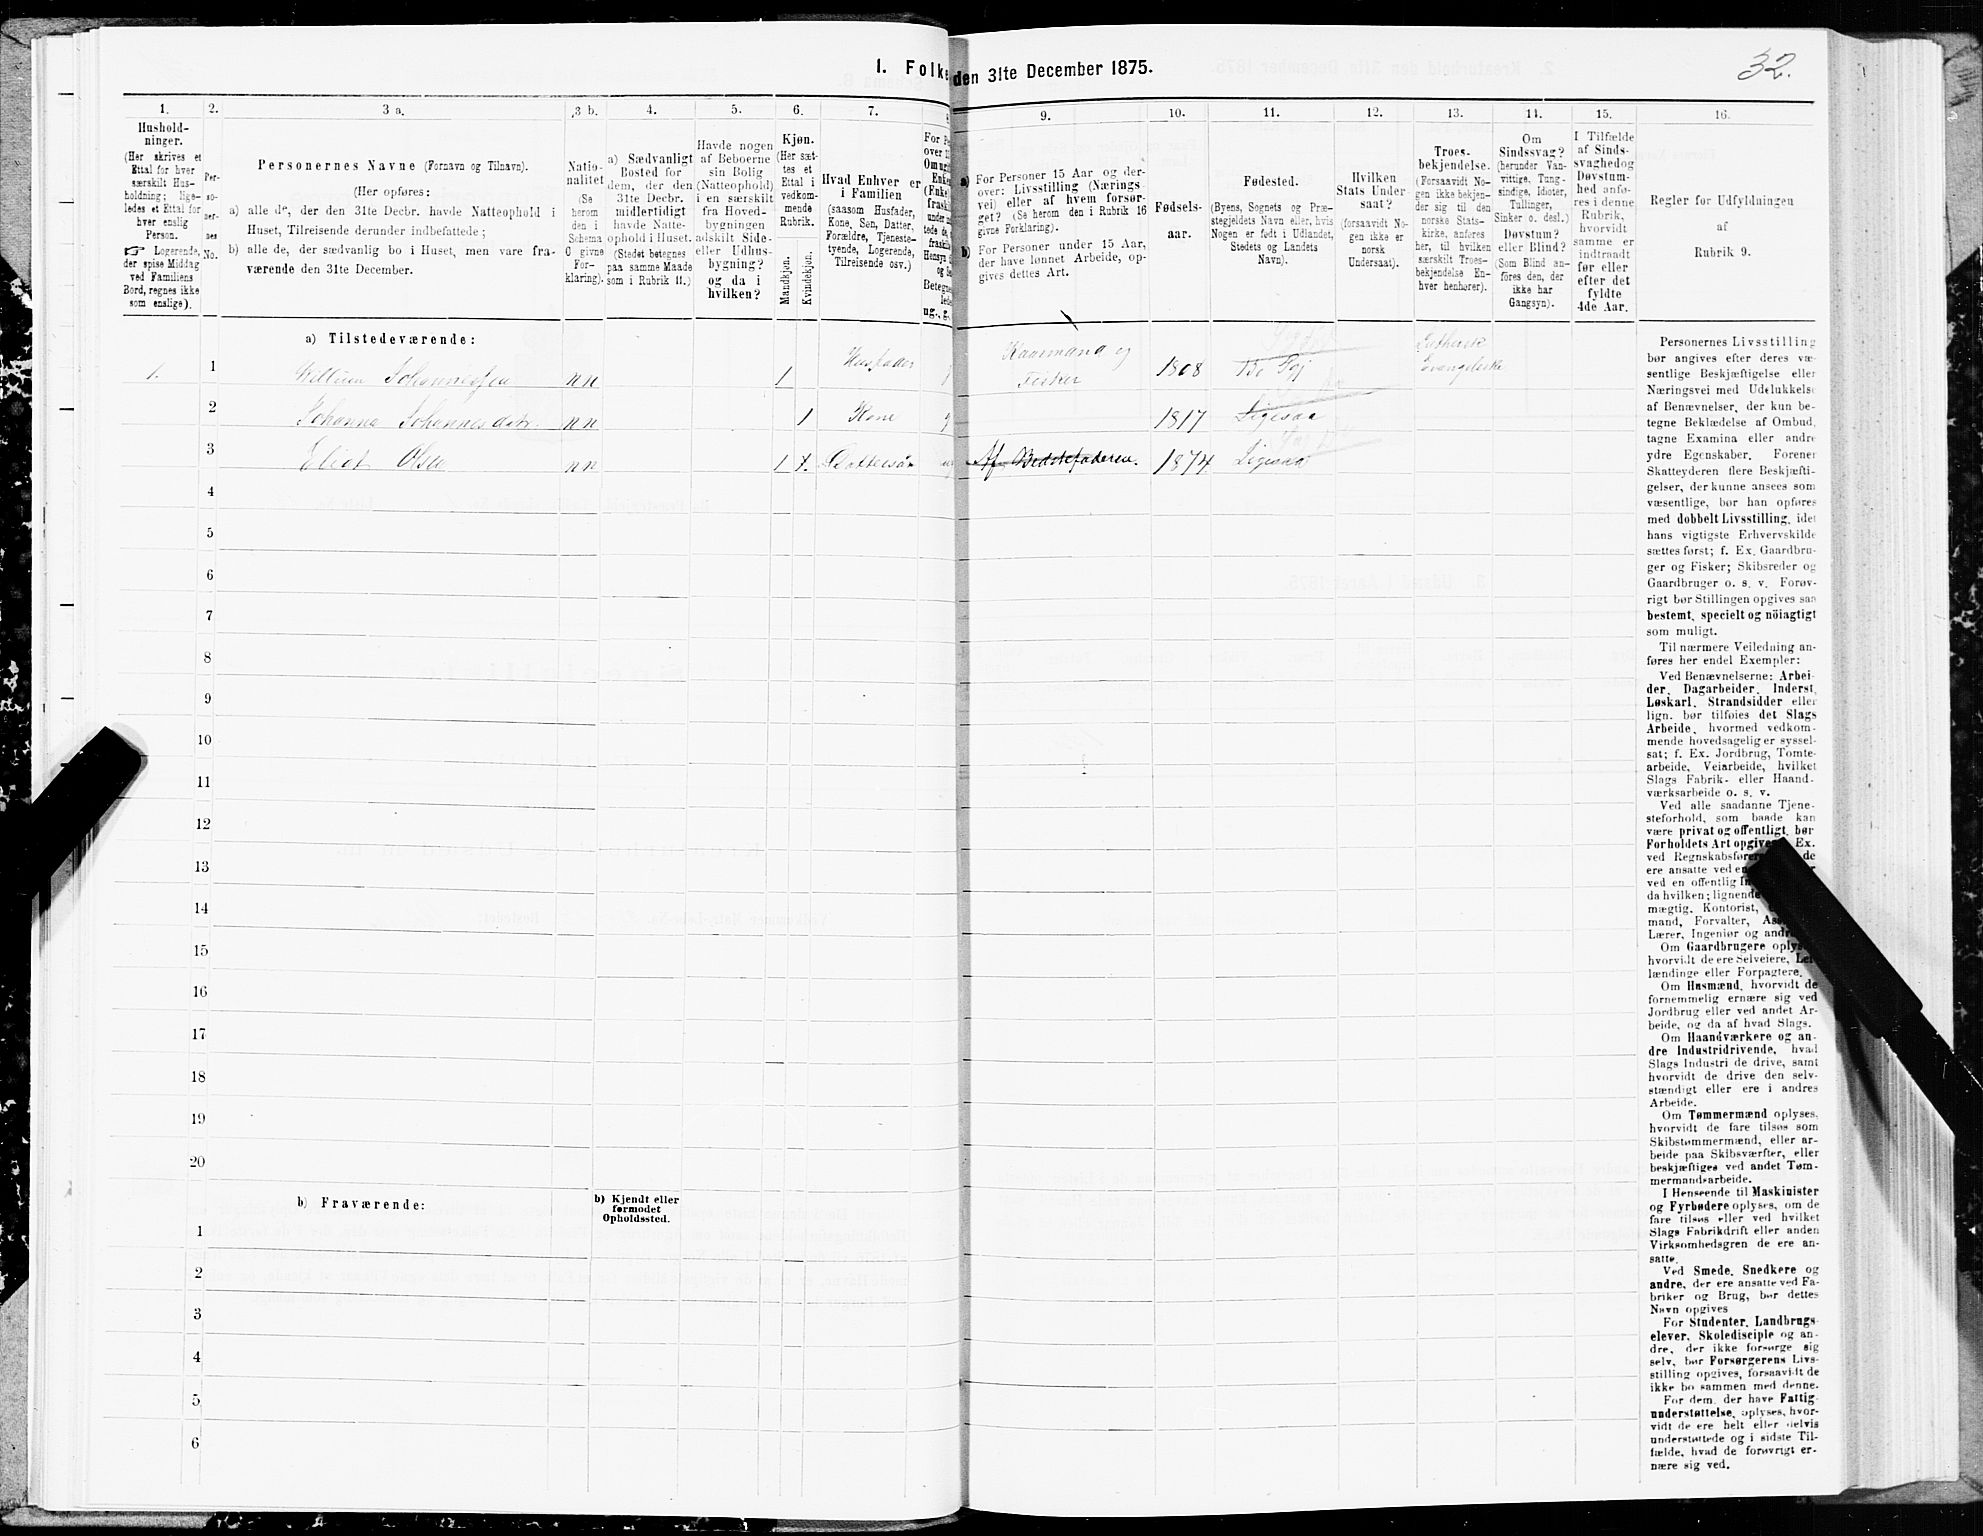 32.
1. Folke
den 31te December 1875.
1.
2.
3 a.
3 b.
4.
5.
6.
7.
8
9.
10.
11.
12.
13.
14.
15.
16.
Hushold-
ninger.
(Her skrives et
Ettal for hver
særskilt Hus-
holdning; lige-
ledes et Ettal for
hver enslig
Person.
☞ Logerende,
der spise Middag
ved Familiens
Bord, regnes ikke
som enslige).
Per-
so-
ner-
nes
No.
Personernes Navne (Fornavn og Tilnavn).
(Her opføres:
a) alle de, der den 31te Decbr. havde Natteophold i
Huset, Tilreisende derunder indbefattede;
b) alle de, der sædvanlig bo i Huset, men vare fra-
værende den 31te December.
Natio-
nalitet
(Se
herom
den i
Schema
O givne
For-
klaring).
a) Sædvanligt
Bosted for
dem, der den
31te Decbr.
midlertidigt
havde Natte-
ophold i Huset.
(Stedet betegnes
paa samme Maade
som i Rubrik 11.)
Havde nogen
af Beboerne
sin Bolig
(Natteophold)
i en særskilt
fra Hoved-
bygningen
adskilt Side-
eller Udhus-
bygning?
og da i
hvilken?
Kjøn.
(Her sæt-
tes et
Ettal i
vedkom-
mende
Rubrik.
Mandkjøn.
Kvindekjøn.
Hvad Enhver er
i Familien
(saasom Husfader,
Kone, Søn, Datter,
Forældre, Tjeneste-
tyende, Logerende,
Tilreisende osv.)
a) For Personer 15 Aar og der-
over: Livsstilling (Nærings-
vei) eller af hvem forsør-
get? (Se herom den i Rubrik 16
givne Forklaring).
b) For Personer under 15 Aar,
der have lønnet Arbeide, op-
gives dettes Art.
Fødsels-
aar.
Fødested.
(Byens, Sognets og Præ-
stegjeldets Navn eller, hvis
Nogen er født i Udlandet,
Stedets og Landets
Navn).
Hvilken
Stats Under-
saat?
(forsaavidt No-
gen ikke er
norsk
Undersaat).
Troes-
bekjendelse.
(Forsaavidt No-
gen ikke bekjen-
der sig til den
norske Stats-
kirke, anføres
her, til hvilken
særskilt Troes-
bekjendelse En-
hver henhører).
Om
Sindssvag?
(herunder Van-
vittige, Tung-
sindige, Idioter,
Tullinger,
Sinker o. desl.)
Døvstum?
eller Blind?
(Som Blind an-
føres den, der
ikke har
Gangsyn).
I Tilfælde
af Sinds-
svaghedog
Døvstum-
hed anfø-
res i denne
Rubrik,
hvorvidt
samme er
indtraadt
før eller
efter det
fyldte
4de Aar.
Regler for Udfyldningen
af
Rubrik 9.
a) Tilstedeværende:
1. 1 Willum Johannessen nn 1 Husfader Kaarmand og
Fisker 1808 Bø Sgj Lutherske
Evangeliske
2 Johanna Johannesdatr. nn 1 Kone 1817 Ligesaa
3 Eliot Olsen nn 1 Dattersøn Af Bedstefaderen. 1874 Ligesaa
4
5
6
7
8
9
10
11
12
13
14
15
16
17
18
19
20
b) Fraværende:
b) Kjendt eller
formodet
Opholdssted.
1
2
3
4
5
6
Personernes Livsstilling
bør angives efter deres væ-
sentlige Beskjæftigelse eller
Næringsvei med Udelukkelse
af Benævnelser, der kun be-
tegne Beklædelse af Ombud,
tagne Examina eller andre
ydre Egenskaber. Forener
Skatteyderen flere Beskjæfti-
gelser, der kunne ansees som
væsentlige, bør han opføres
med dobbelt Livsstilling, idet
hans vigtigste Erhvervskilde
sættes først; f. Ex. Gaardbru-
ger og Fisker; Skibsreder og
Gaardbruger o. s. v. Forøv-
rigt bør Stillingen opgives saa
bestemt, specielt og nöiagtigt
som muligt.
Til nærmere Veiledning an-
føres her endel Exempler:
Ved Benævnelserne: Arbei-
der, Dagarbeider, Inderst,
Løskarl, Strandsidder eller
lign. bør tilføies det Slags
Arbeide, hvormed vedkom-
mende hovedsagelig er syssel-
sat; f. Ex. Jordbrug, Tomte-
arbeide, Veiarbeide, hvilket
Slags Fabrik- eller Haand-
værksarbeide o. s. v.
Ved alle saadanne Tjene-
steforhold, som baade kan
være privat og offentligt, bør
Forholdets Art opgives. Ex.
ved Regnskabsfører de
ere ansatte ved en
ved en offentlig
da hvilken; lignende
mægtig, Kontorist,
mand, Forvalter,
Lærer, Ingeniør og
Om Gaardbrugere oplyses,
hvorvidt de ere Selveiere, Lei-
lændinge eller Forpagtere.
Om Husmænd, hvorvidt de
fornemmelig ernære sig ved
Jordbrug eller ved andet Ar-
beide, og da af hvad Slags.
Om Haandværkere og an-
dre Industridrivende, hvad
Slags Industri de drive, samt
hvorvidt de drive den selv-
stændigt eller ere i andres
Arbeide.
Om Tømmermænd oplyses,
hvorvidt de fare tilsøs som
Skibstømmermænd, eller ar-
beide paa Skibsværfter, eller
beskjæftiges ved andet Tøm-
mermandsarbeide.
I Henseende til Maskinister
og Fyrbødere oplyses, om de
fare tilsøs eller ved hvilket
Slags Fabrikdrift eller anden
Virksomhedsgren de ere an-
satte.
Ved Smede, Snedkere og
andre, der ere ansatte ved Fa-
briker og Brug, bør dettes
Navn opgives
For Studenter, Landbrugs-
elever, Skoledisciple og an-
dre, der ikke forsørge sig
selv, bør Forsørgerens Livs-
stilling opgives, forsaavidt de
ikke bo sammen med denne.
For dem, der have Fattig-
understøttelse, oplyses, hvor-
vidt de ere helt eller delvis
understøttede og i sidste Til-
fælde, hvad de forøvrigt er-
nære sig ved.